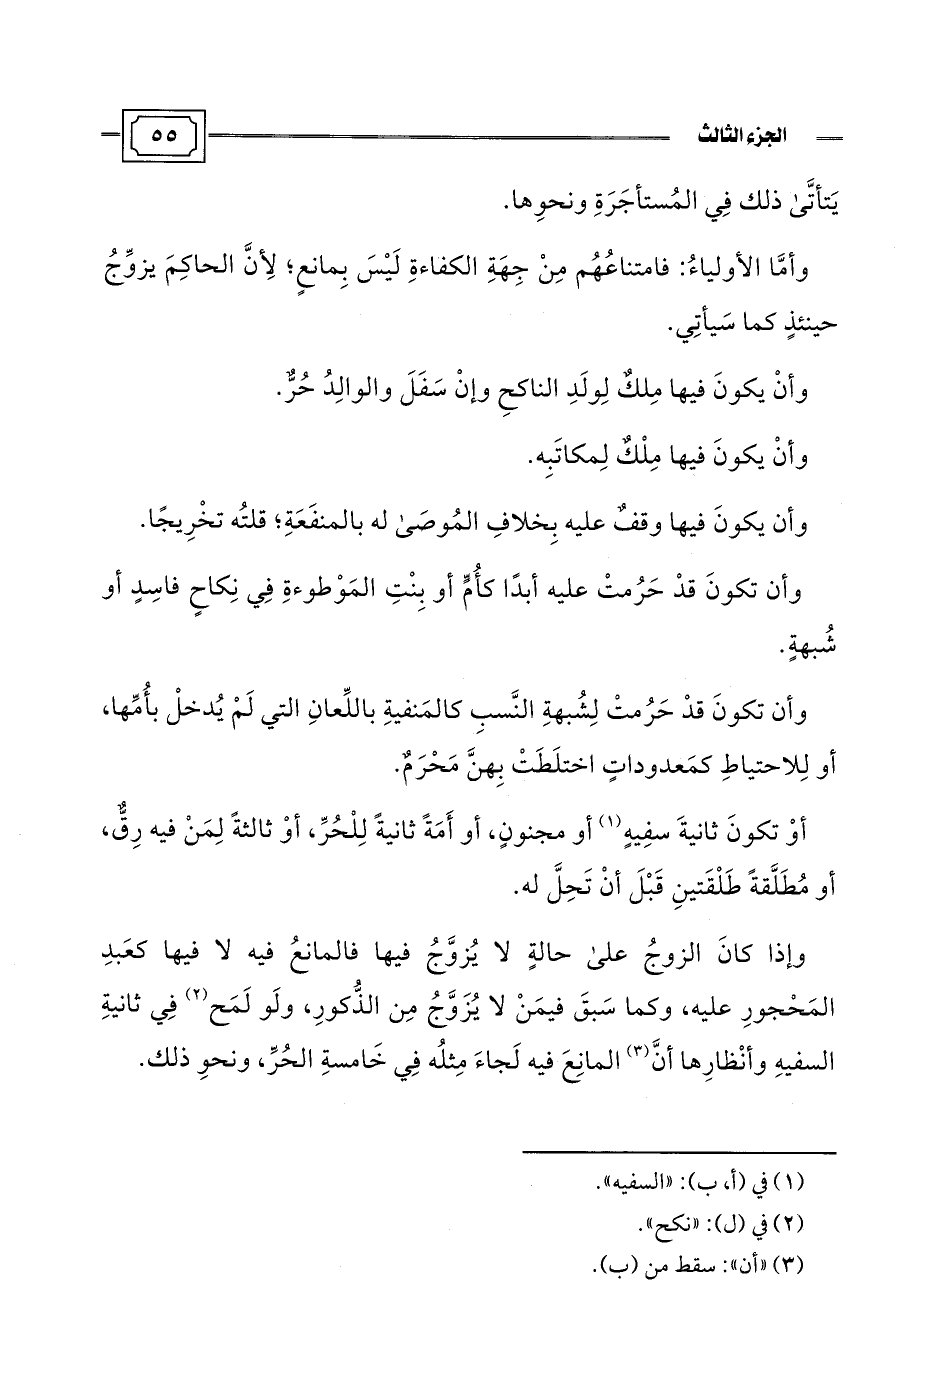 الجزء الثالث
٥٥
يَتأتَّىٰ ذلك فِي المُستأجَرَةِ ونحوِها.
وأمَّا الأولياءُ: فامتناعُهُم مِنْ جِهَةِ الكفاءةِ لَيْسَ بِمانعٍ؛ لِأنَّ الحاكِمَ يزوِّجُ
حينئذٍ كما سَيأتِي.
وأنْ يكونَ فيها مِلكٌ لِولَدِ الناكحِ وإنْ سَفَلَ والوالِدُ حُرٌّ.
وأنْ يكونَ فيها مِلْكٌ لِمكاتَبِه.
وأن يكونَ فيها وقفٌ عليه بِخلافِ المُوصَىٰ له بالمنفَعَةِ؛ قلتُه تخْرِيجًا.
وأن تكونَ قدْ حَرُمتْ عليه أبدًا كأُمٍّ أو بِنْتِ المَوْطوءةِ فِي نِكاحٍ فاسِدٍ أو
شُبهةٍ.
وأن تكونَ قدْ حَرُمتْ لِشُبهةِ النَّسبِ كالمَنفيةِ باللِّعانِ التي لَمْ يُدخلْ بأُمِّها،
أو لِلاحتياطِ كمَعدوداتٍ اختلَطَتْ بِهنَّ مَحْرَمٌ.
أوْ تكونَ ثانيةَ سفِيهٍ(١) أو مجنونٍ، أو أَمَةً ثانيةً لِلْحُرِّ، أوْ ثالثةً لِمَنْ فيه رِقٌّ،
أو مُطَلَّقةً طَلْقَتينِ قَبْلَ أنْ تَحِلَّ له.
وإذا كانَ الزوجُ علىٰ حالةٍ لا يُزوَّجُ فيها فالمانعُ فيه لا فيها كعَبدِ
المَحْجورِ عليه، وكما سَبقَ فيمَنْ لا يُزَوَّجُ مِن الذُّكورِ، ولَو لمَح(٢) فِي ثانيةِ
السفيهِ وأنْظارِها أنَّ(٣) المانِعَ فيه لَجاءَ مِثلُه فِي خَامسةِ الحُرِّ، ونحوِ ذلك.
(١) في (أ، ب): «السفيه».
(٢) في (ل): «نكح».
(٣) «أن»: سقط من (ب).